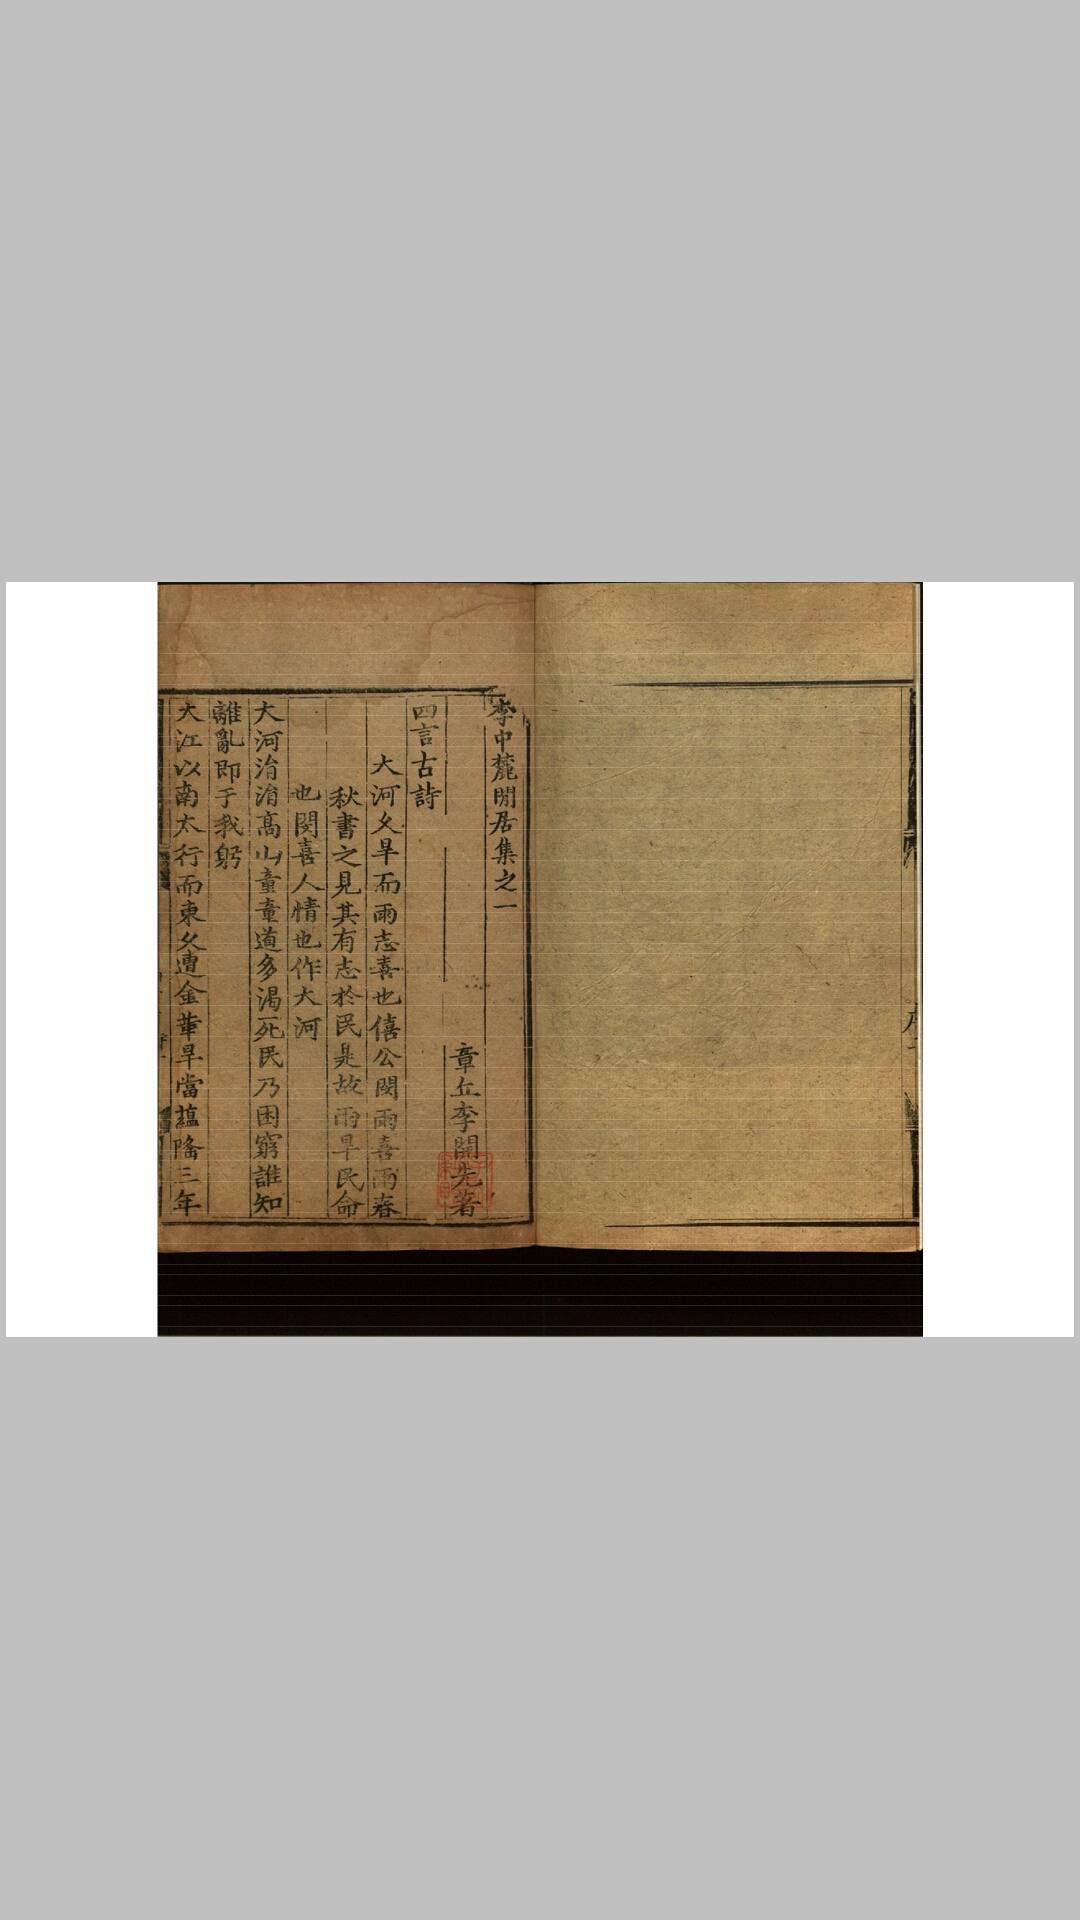 李中麓閒居集之一
章丘李開先著
四言古詩
大河久旱而雨志喜也僖公閔雨喜雨春
秋書之見其有志於民是故雨旱民命
也閔喜人情也作大河
大河消消高山童童道多渴死民乃困窮誰知
離亂即于我躬
大江以南太行而東久遭金革旱當蘊隆三年
序二